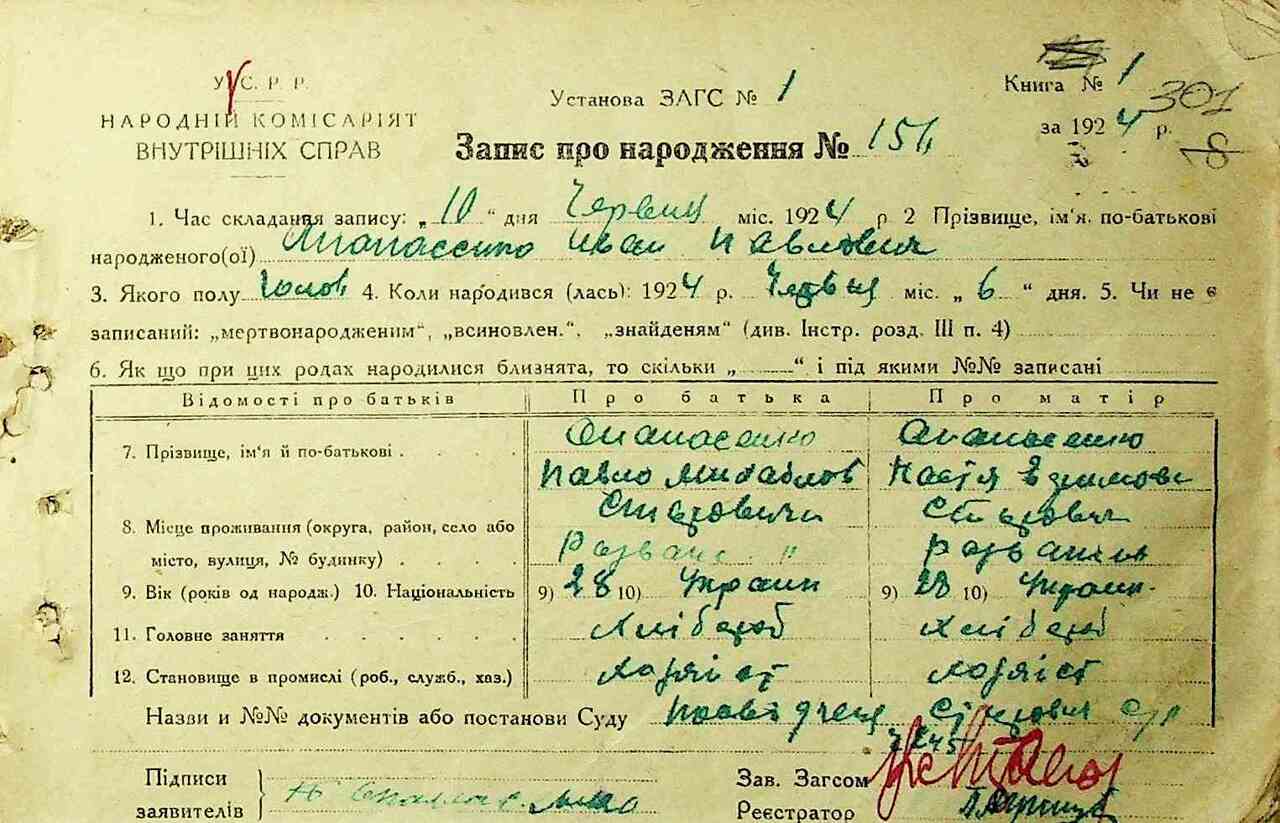 У.С.Р.Р.
НАРОДНІЙ КОМІСАРІЯТ
ВНУТРІШНІХ СПРАВ
Установа ЗАГС № 1
Запис про народження №
Книга № 1
301
за 1924 р.
18
1. Час складання запису: „ 10 “ дня Червня міс. 1924 р 2 Прізвище, ім'я. по-батькові
народженого(ої) Апанасенко Иван Павлович
3. Якого полу чолов 4. Коли народився (лась): 1924 р. Червня міс. „ 6 “ дня. 5. Чи не є
записаний: „мертвонародженим“, „всиновлен.“, „знайденям“ (див. Інстр. розд. III п. 4)
6. Як що при цих родах народилися близнята, то скільки „ “ і під якими №№ записані
Відомості про батьків Про батька Про матір
7. Прізвище, ім'я й по-батькові Опанасенко Опанасенко
Павло Михайлов Настя
8. Місце проживання (округа, район, село або Старовичи Старович
місто, вулиця, № будинку)
9. Вік (років од народж.) 10. Національність 9) 28 10) Украин 9) 28 10) Украин.
11. Головне заняття Хлібороб Хлібороб
12. Становище в промислі (роб., служб., хаз.) хазяіст хазяіст
Назви и №№ документів або постанови Суду Посвідчення Старович
Підписи
заявителів
Зав. Загсом
Реєстратор